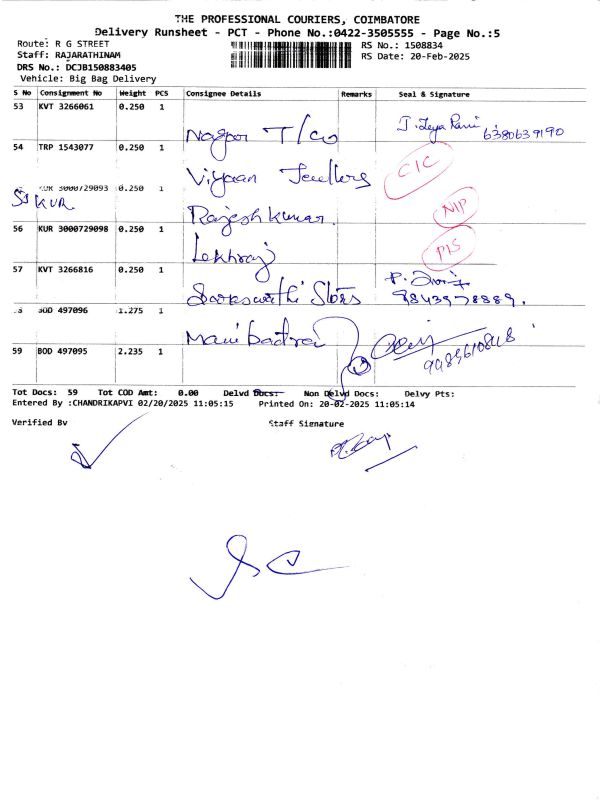 THE PROFESSIONAL COURIERS, COIMBATORE
Delivery Runsheet - PCT - Phone No.:0422-3505555 - Page No.:5
Route: R G STREET RS No.: 1508834
Staff: RAJARATHINAM RS Date: 20-Feb-2025
DRS No.: DCJB150883405
Vehicle: Big Bag Delivery
S No Consignment No Weight PCS Consignee Details Remarks Seal & Signature
53 KVT 3266061 0.250 1
Nagpor T/co J. Jeya Rani 6380639190
54 TRP 1543077 0.250 1
Viyaan Jewellers CIC
KUR 3000729093 0.250 1
55 KUR
Rajesh kumar NIP
56 KUR 3000729098 0.250 1
Lekhraj PIS
57 KVT 3266816 0.250 1
Stores 9843978889.
BOD 497096 1.275 1
Mani badra
59 BOD 497095 2.235 1
Tot Docs: 59 Tot COD Amt: 0.00 Delvd Docs: Non Delvd Docs: Delvy Pts:
Entered By :CHANDRIKAPVI 02/20/2025 11:05:15 Printed On: 20-02-2025 11:05:14
Verified By Staff Signature